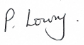 P. Lowry.